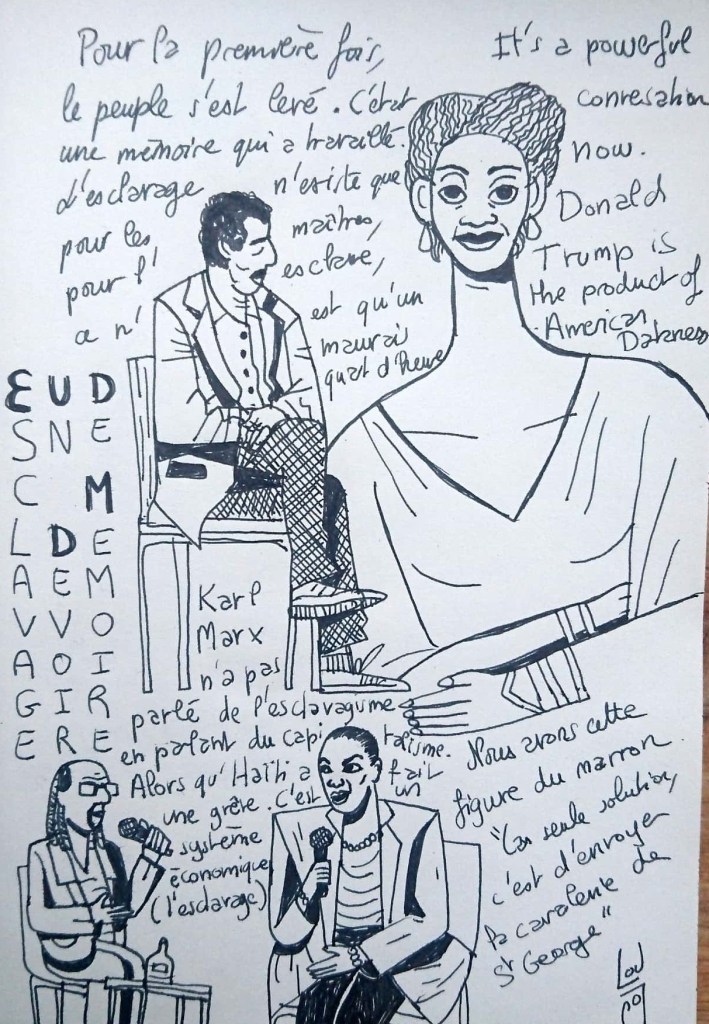 Pour la première fois,
le peuple s'est levé. C'était
une mémoire qui a travaillé.
d'esclavage n'existe que
pour les maîtres,
pour l' esclave,
a n' est qu'un
mauvais
quart d'heure
It's a powerful
conversation
now.
Donald
Trump is
the product of
American
Darkness
ESCLAVAGE
UN DEVOIRE
DE MEMOIRE
Karl
Marx
n'a pas
parlé de l'esclavagisme
en parlant du capitalisme.
Alors qu'Haïti a fait
une grève. C'est un
système
économique
(l'esclavage)
Nous avons cette
figure du marron.
"La seule solution,
c'est d'envoyer
la cavalerie de
St George"